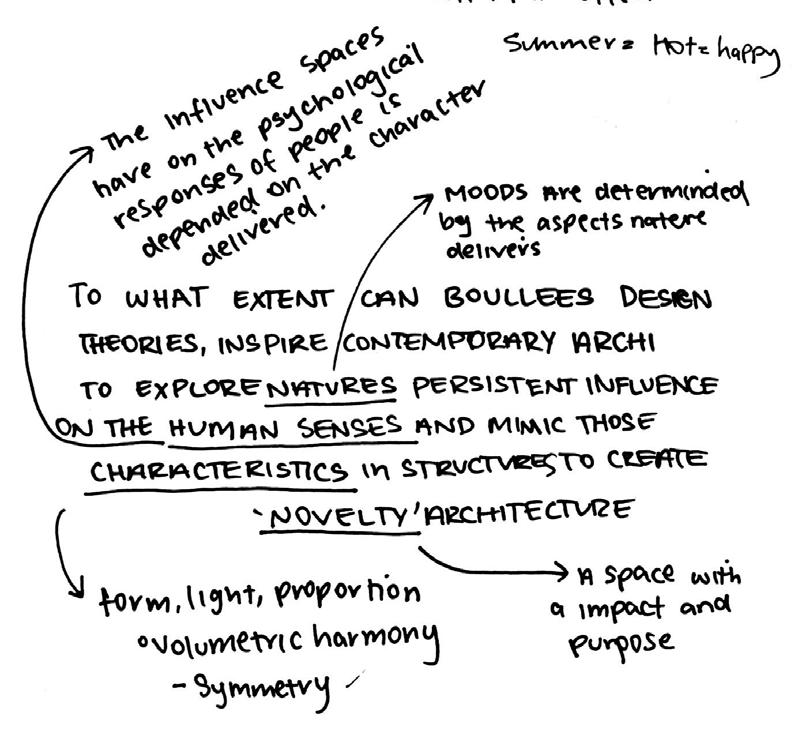 Summer = Hot = happy
The Influence spaces
have on the psychological
responses of people is
depended on the character
delivered.
MOODS Are determinded
by the aspects nature
delivers
TO WHAT EXTENT CAN BOULLEES DESIGN
THEORIES, INSPIRE CONTEMPORARY ARCHI
TO EXPLORE NATURES PERSISTENT INFLUENCE
ON THE HUMAN SENSES AND MIMIC THOSE
CHARACTERISTICS in STRUCTURES, TO CREATE
'NOVELTY' ARCHITECTURE
form, light, proportion
volumetric harmony
- Symmetry
A space with
a impact and
purpose